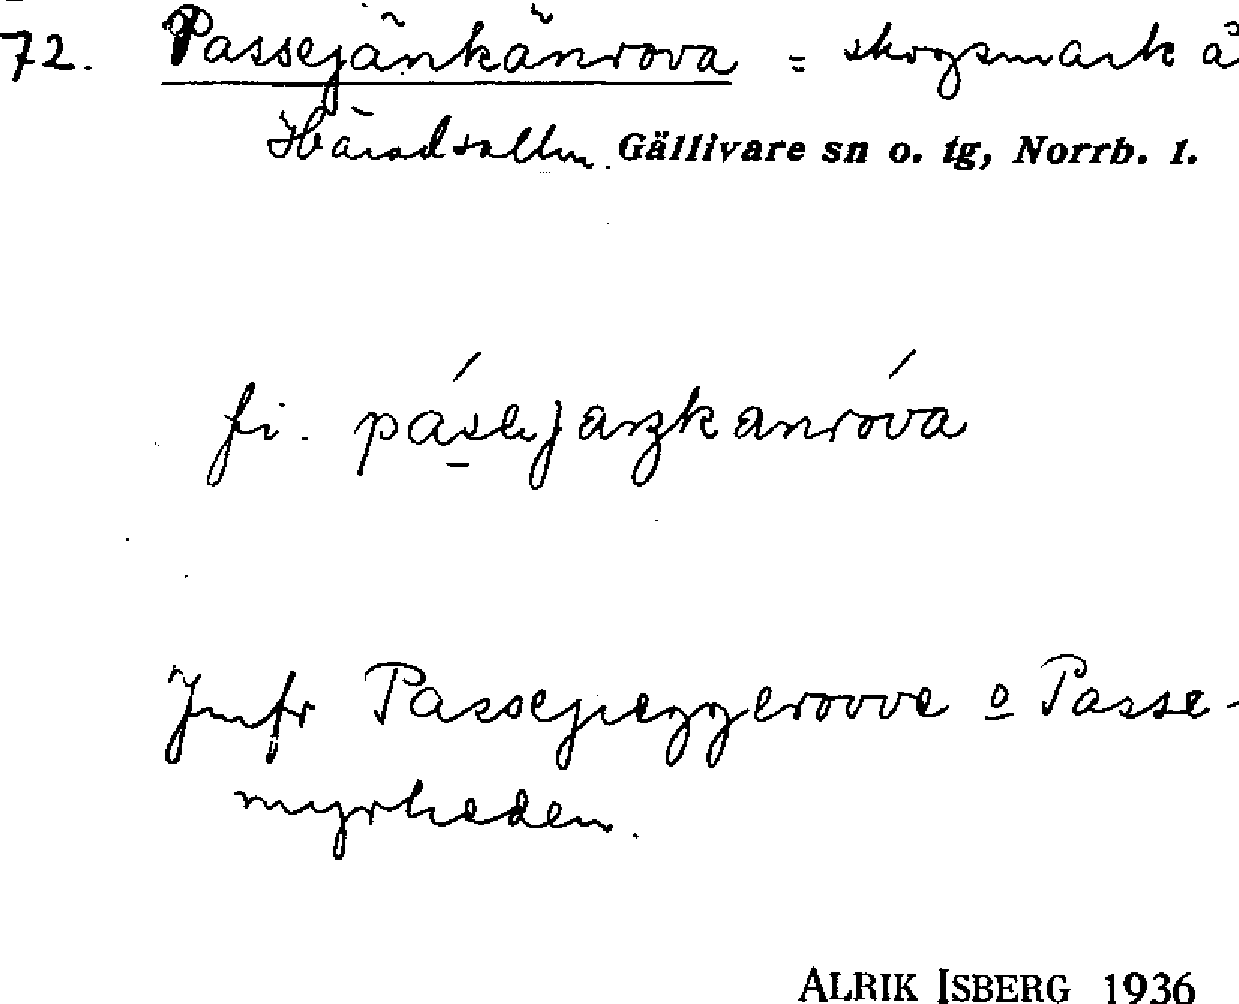 72. Passejänkänrova = skogsmark å
Häradsallm. Gällivare sn o. tg, Norrb. l.
fi. pásejaŋkanróva
Jmfr Passejieggerovve o Passe-
myrheden.
ALRIK ISBERG 1936